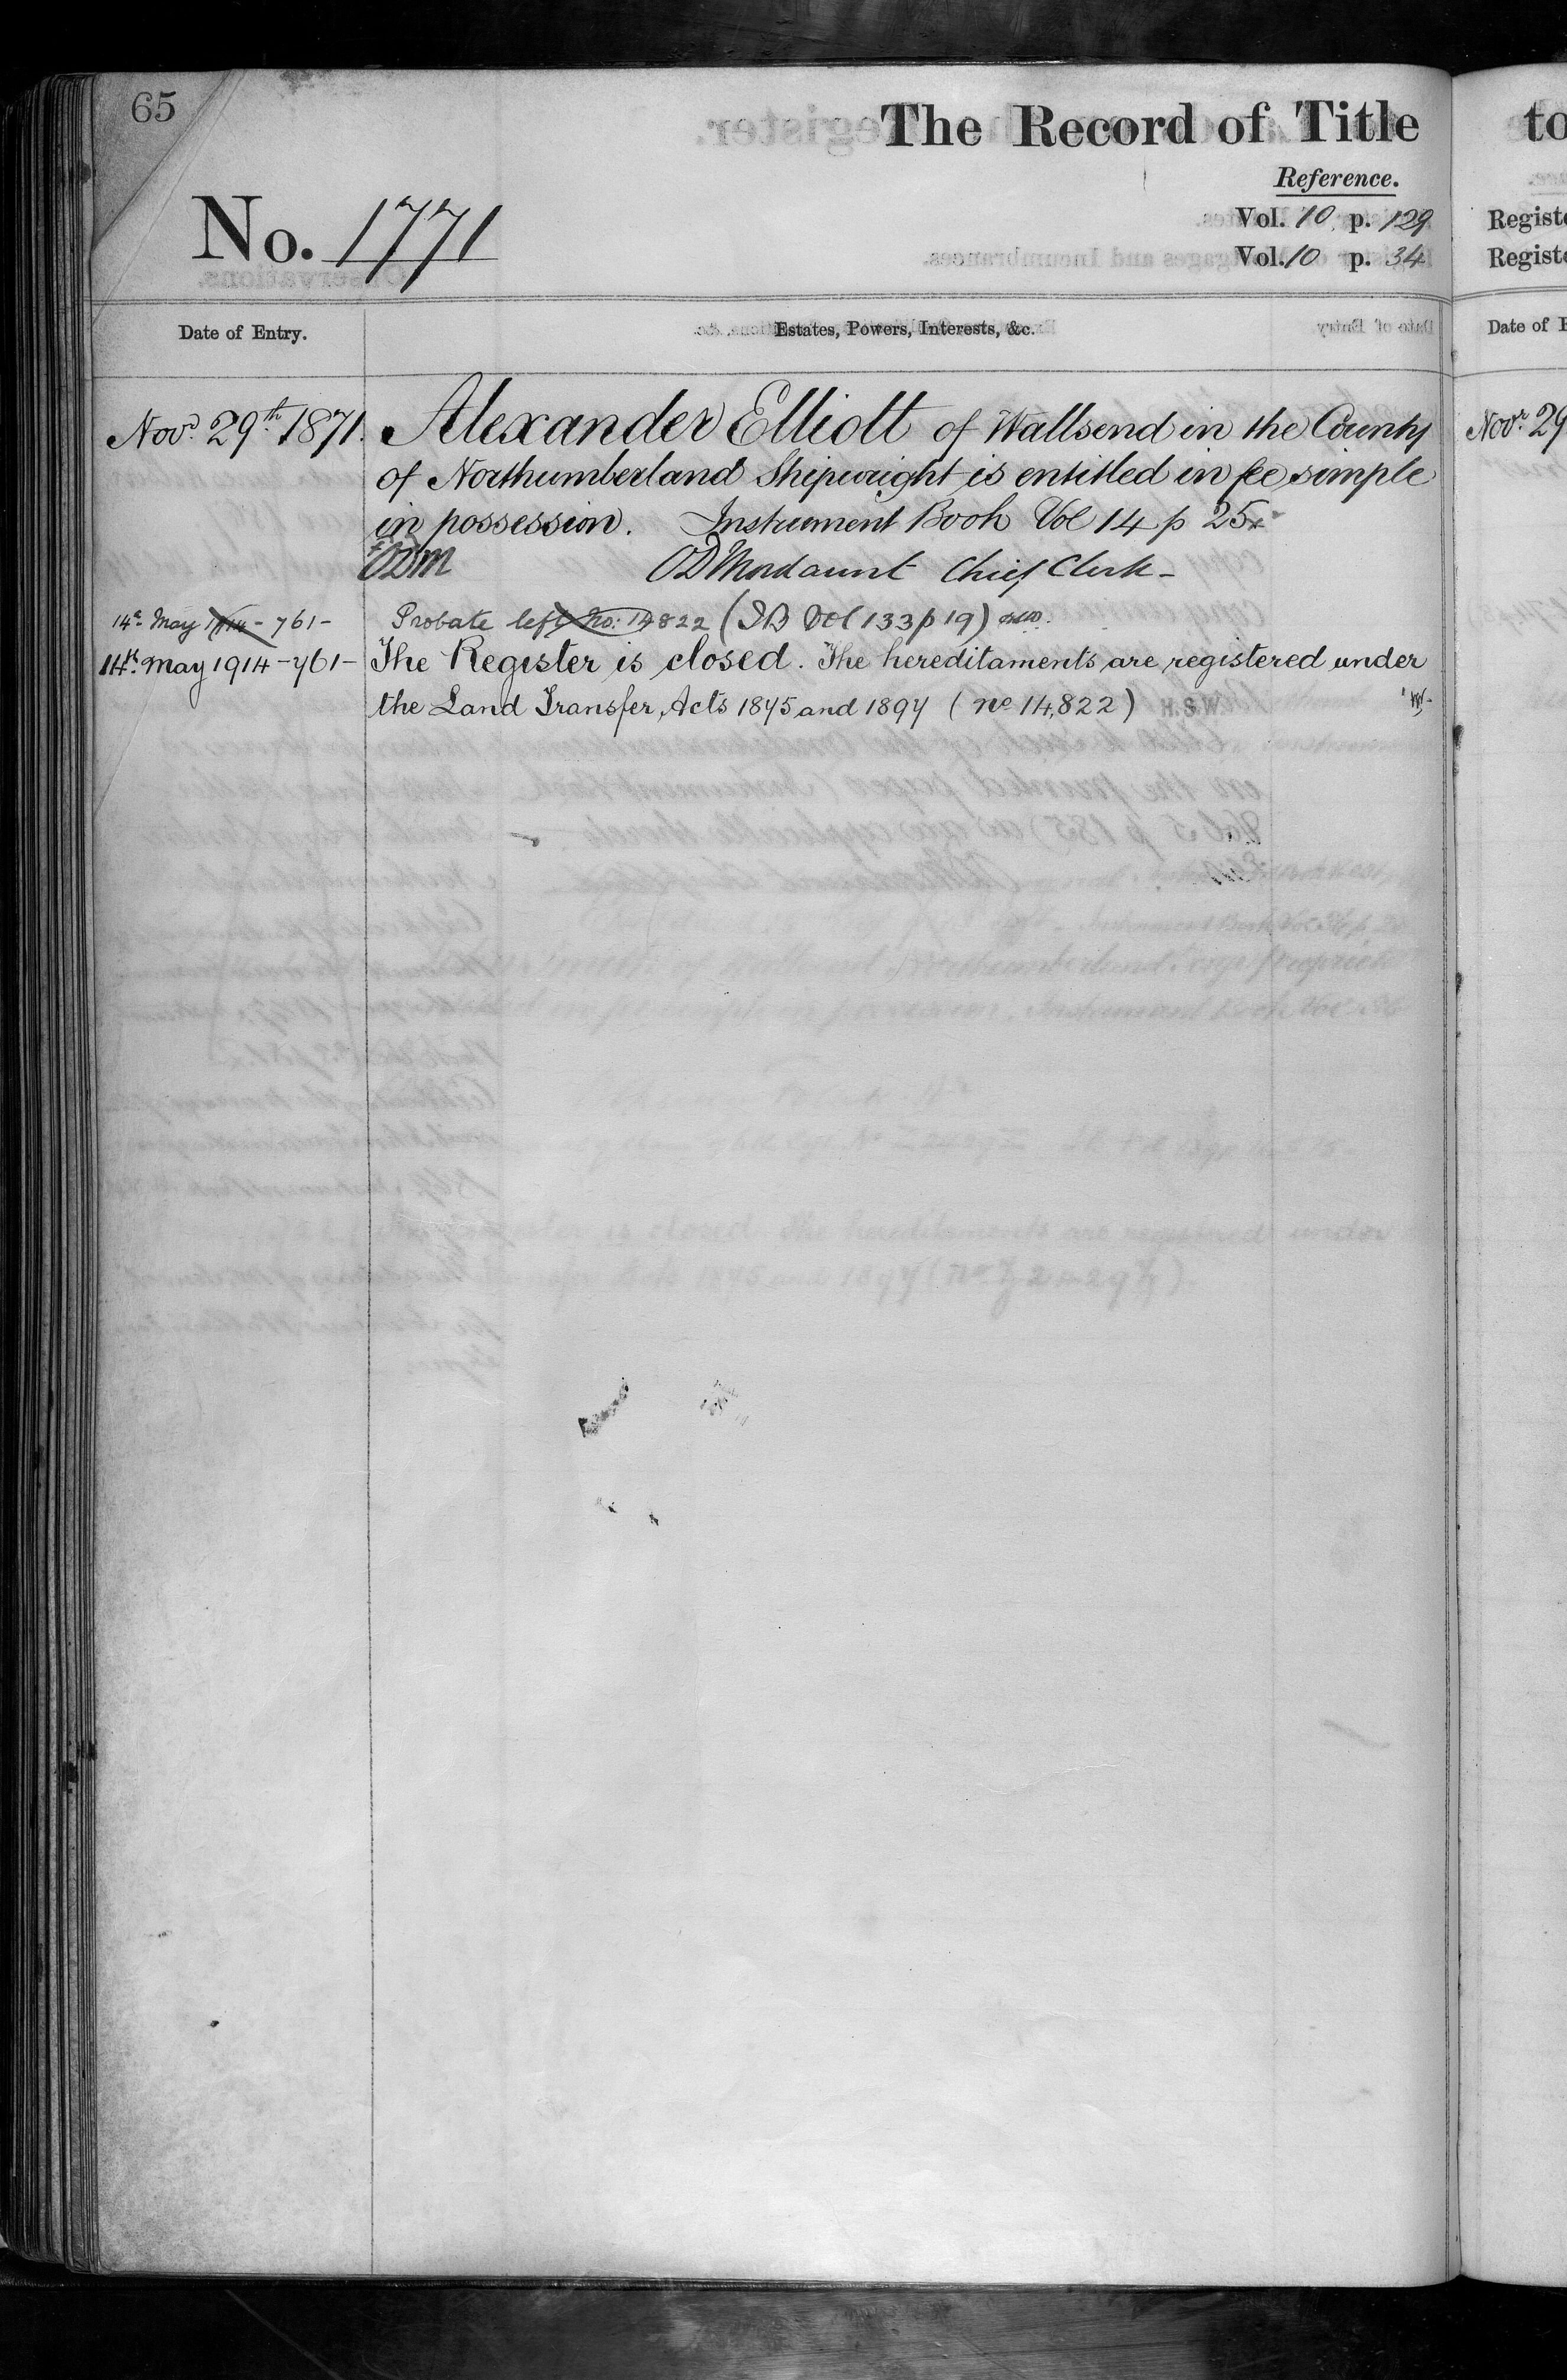 65
The Record of Title
Reference.
No. 1771
Vol. 10 p. 129
Vol. 10 p. 34
Date of Entry.
Estates, Powers, Interests, &c.
Novr. 29th 1871. Alexander Elliott of Wallsend in the County
of Northumberland Shipwright is entitled in fee simple
in possession. Instrument Book Vol 14 p 25
ODM ODMordaunt Chief Clerk
14th May 1914 - 761 - Probate left No: 14822 (IB Vol 133 p 19)
14th May 1914 - 761 - The Register is closed. The hereditaments are registered under
the Land Transfer Acts 1875 and 1897 (no 14,822)
to
Registe
Registe
Date of E
Novr. 29